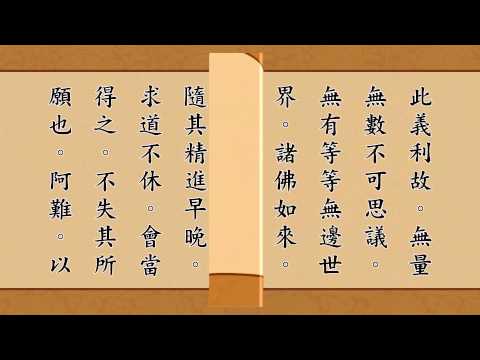 此義利故。無量
無數不可思議。
無有等等無邊世
界。諸佛如來。
隨其精進早晚。
求道不休。會當
得之。不失其所
願也。阿難。以